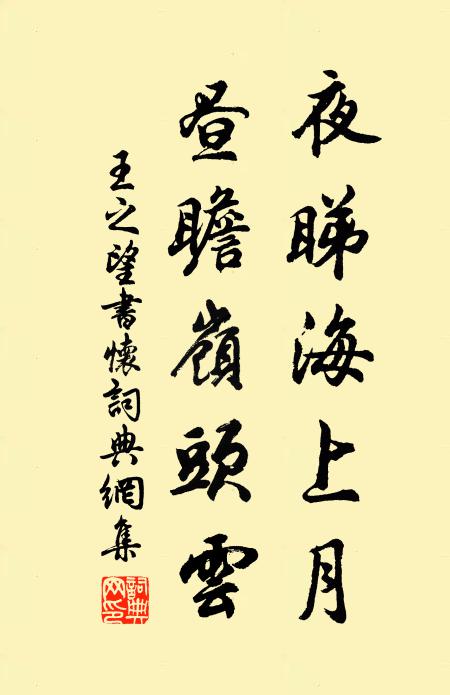 夜睇海上月
昼瞻嶺頭雲
王之望書懷詞典網集
詞典網印